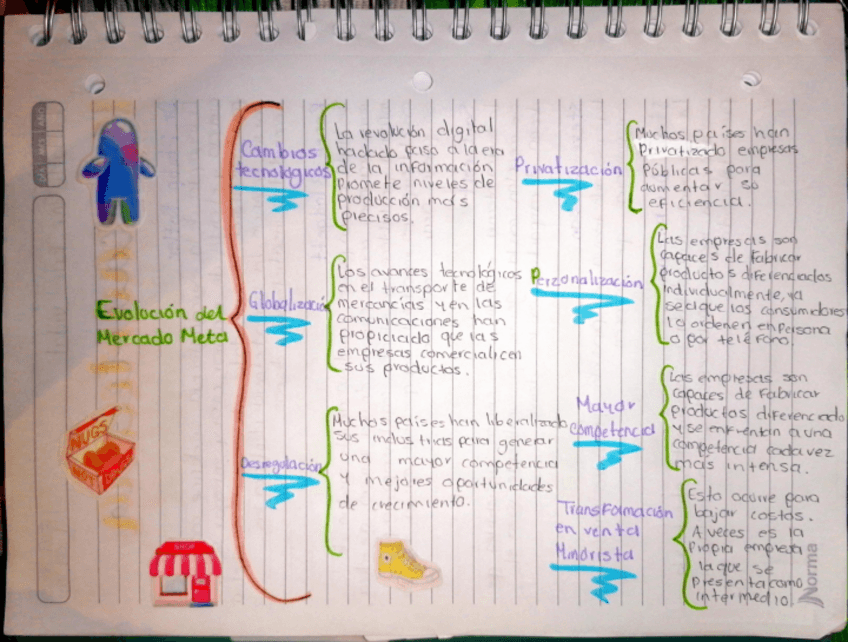 Evolución del
Mercado Meta
Cambios
tecnológicos
La revolución digital
ha dado paso a la era
de la información
Promete niveles de
producción más
precisos.
Globalización
Los avances tecnológicos
en el transporte de
mercancías y en las
comunicaciones han
propiciado que las
empresas comercialicen
sus productos.
Desregulación
Muchos países han liberalizado
sus industrias para generar
una mayor competencia
y mejores oportunidades
de crecimiento.
Privatización
Muchos países han
Privatizado empresas
Públicas para
aumentar su
eficiencia.
Perzonalización
Las empresas son
capaces de Fabricar
productos diferenciados
individualmente, ya
sea que los consumidores
lo ordenen en persona
o por teléfono.
Mayor
competencia
Las empresas son
capaces de Fabricar
productos diferenciado
y se enfrentan a una
competencia cada vez
más intensa.
Transformación
en venta
Minorista
Esto ocurre para
bajar costos.
A veces es la
Propia empresa
la que se
Presenta como
intermedio.
NUGS
SHOP
Norma